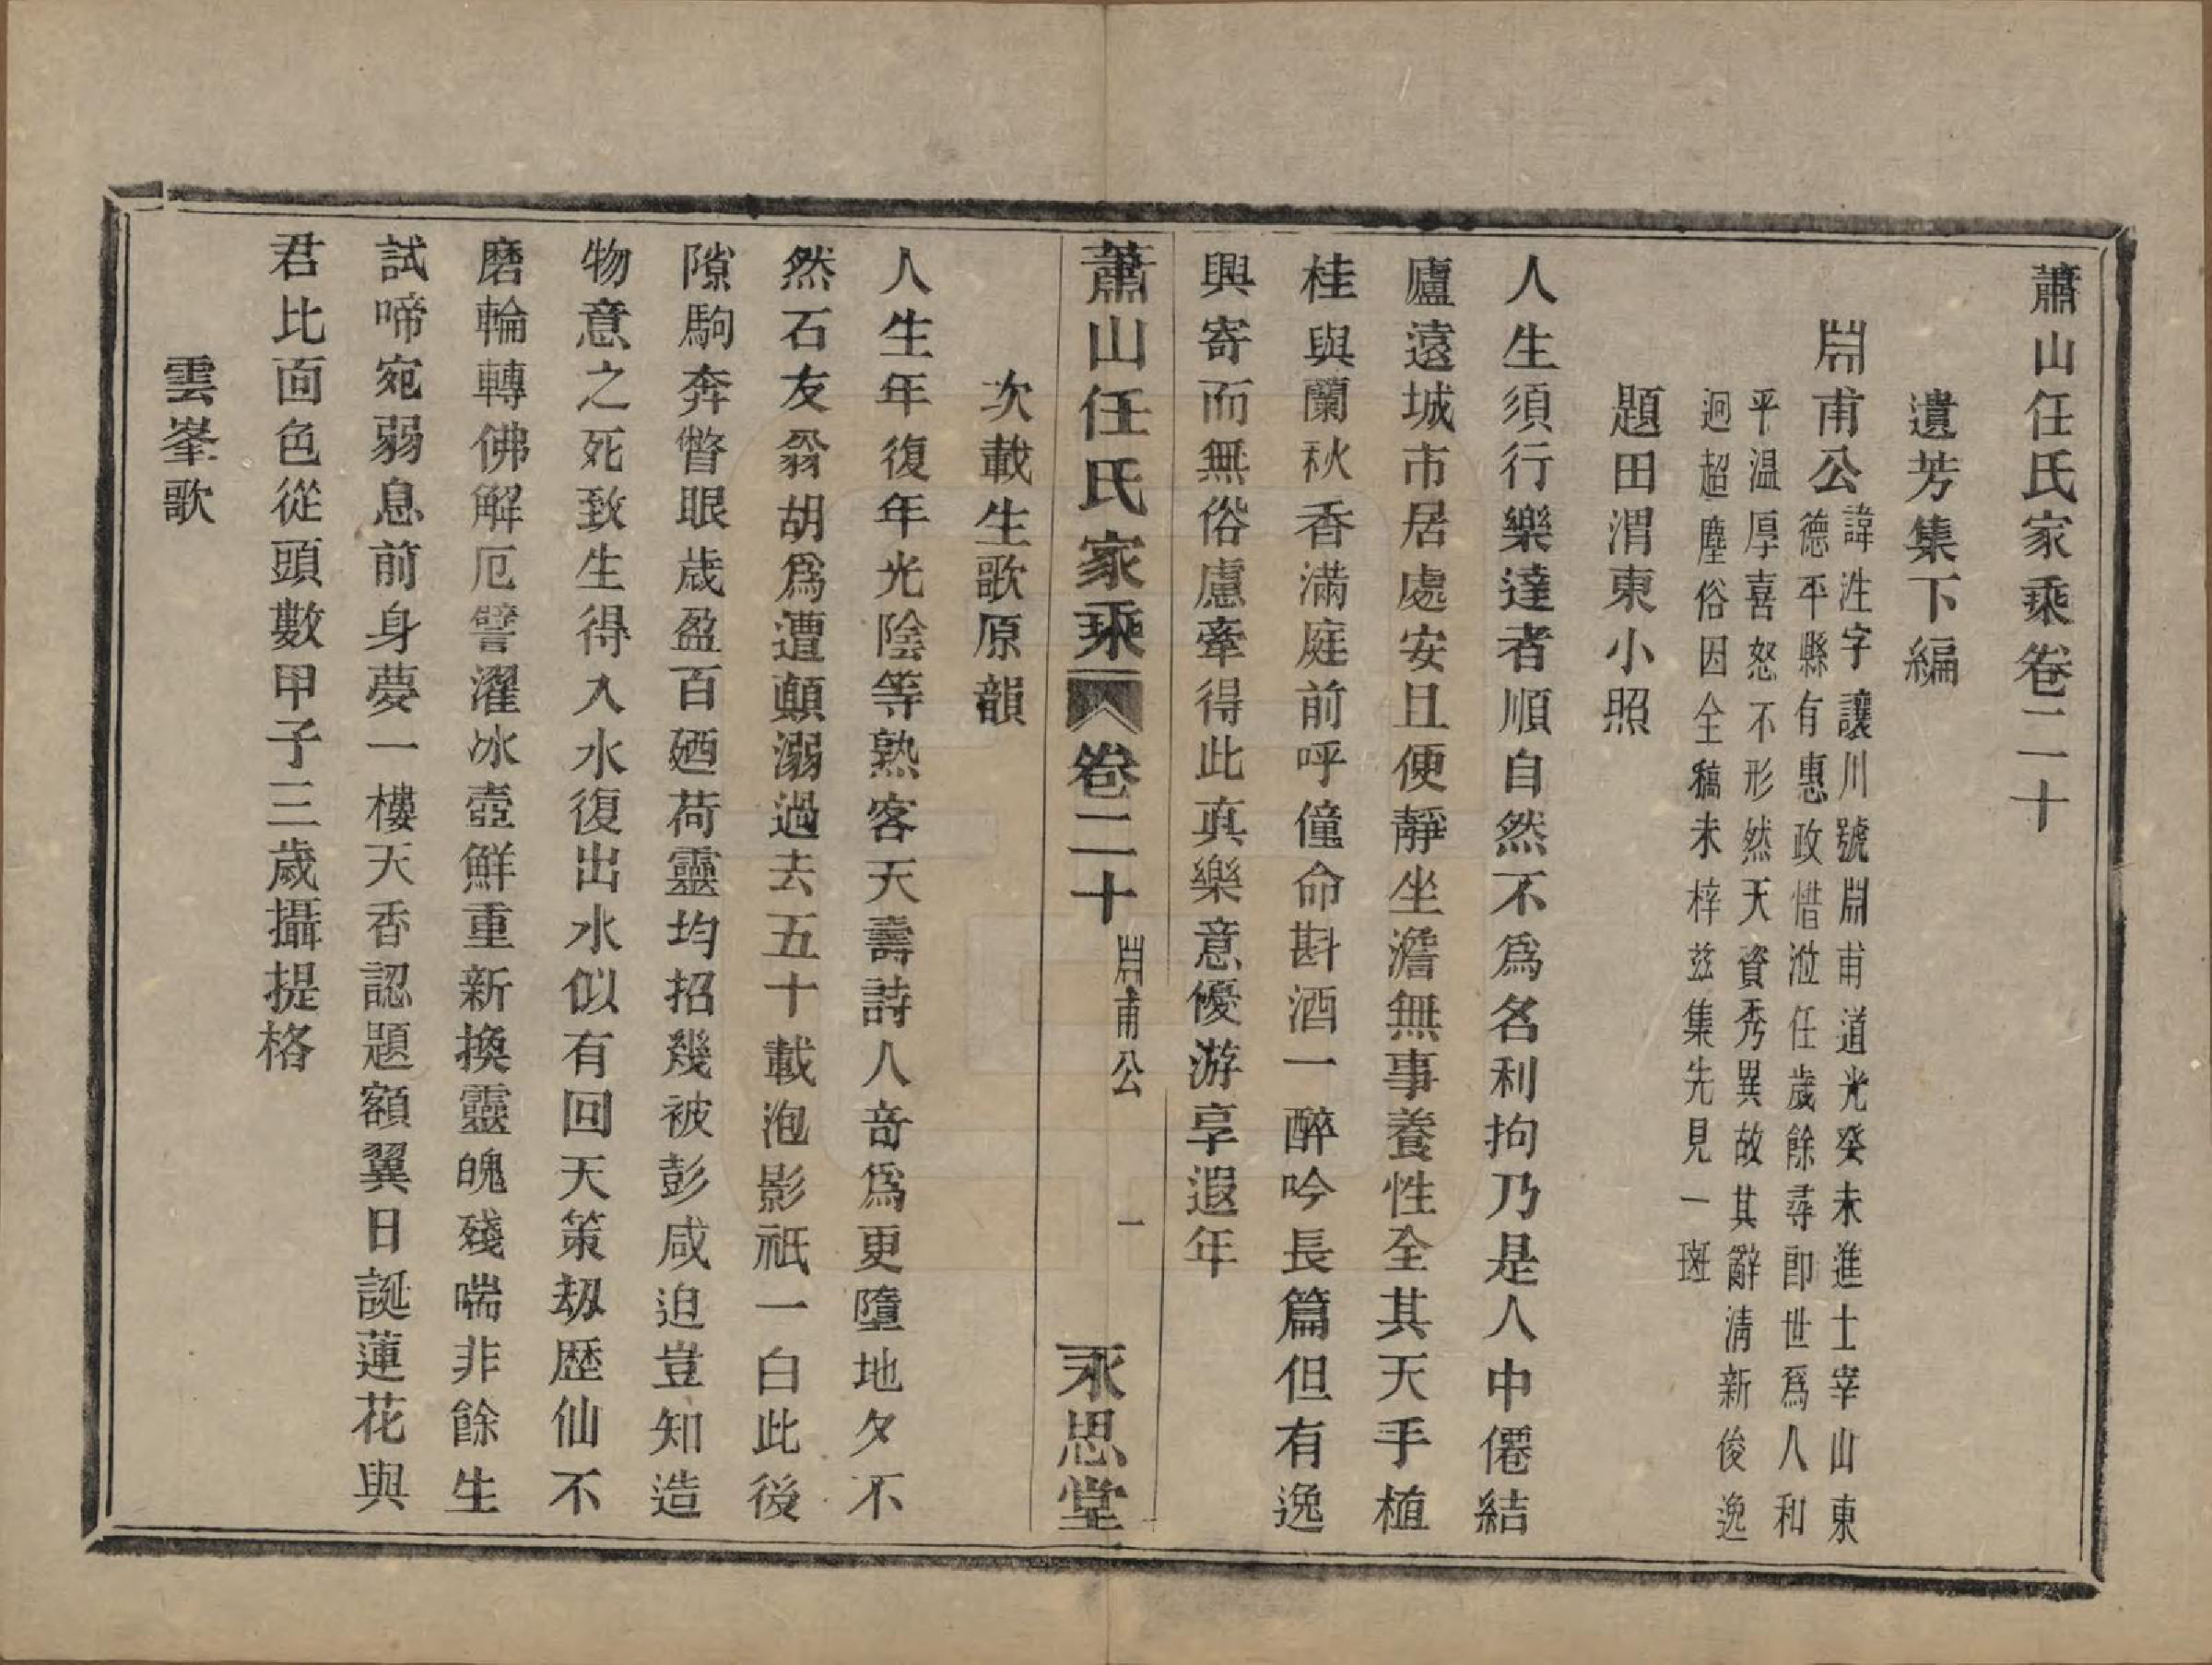 蕭山任氏家乘卷二十
遺芳集下編
淵甫公
諱泩字讓川號淵甫道光癸未進士宰山東
德平縣有惠政惜涖任歲餘尋即世爲人和
平温厚喜怒不形然天資秀異故其辭清新俊逸
迥超塵俗因全稿未梓兹集先見一斑
題田渭東小照
人生須行樂達者順自然不爲名利拘乃是人中僊結
廬遠城市居處安且便靜坐澹無事養性全其天手植
桂與蘭秋香滿庭前呼僮命斟酒一醉吟長篇但有逸
興寄而無俗慮牽得此真樂意優游享遐年
蕭山任氏家乘
卷二十
淵甫公
一
永思堂
次載生歌原韻
人生年復年光陰等熟客天壽詩人奇爲更墮地夕不
然石友翁胡爲遭顛溺過去五十載泡影祇一白此後
隙駒奔瞥眼歲盈百廼荷靈均招幾被彭咸迫豈知造
物意之死致生得入水復出水似有回天策刼歷仙不
磨輪轉佛解厄譬濯冰壺鮮重新換靈魄殘喘非餘生
試啼宛弱息前身夢一樓天香認題額翼日誕蓮花與
君比面色從頭數甲子三歲攝提格
雲峯歌